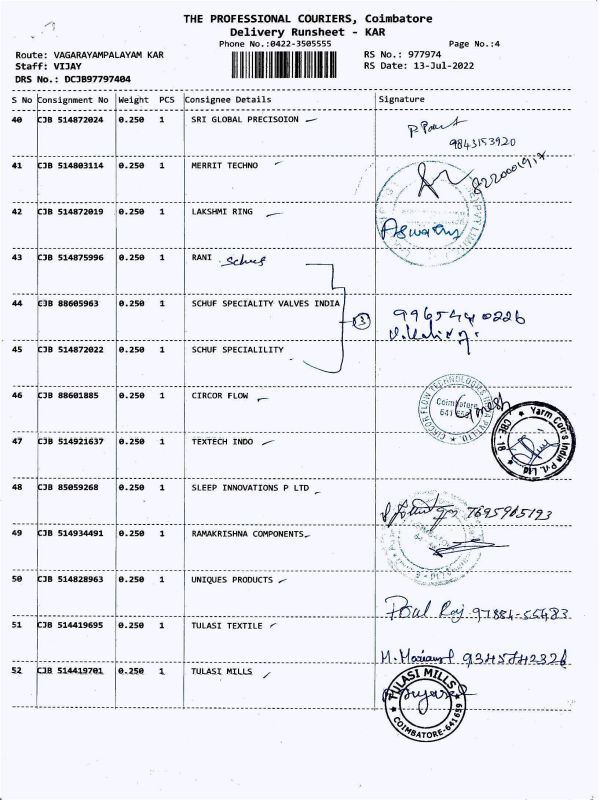 THE PROFESSIONAL COURIERS, Coimbatore
Delivery Runsheet - KAR
Phone No.:0422-3505555 Page No.:4
Route: VAGARAYAMPALAYAM KAR RS No.: 977974
Staff: VIJAY RS Date: 13-Jul-2022
DRS No.: DCJB97797404
S No Consignment No Weight PCS Consignee Details Signature
40 CJB 514872024 0.250 1 SRI GLOBAL PRECISOION
9843153920
41 CJB 514803114 0.250 1 MERRIT TECHNO
8220001917
42 CJB 514872019 0.250 1 LAKSHMI RING
Aswathy
43 CJB 514875996 0.250 1 RANI Schuf
44 CJB 88605963 0.250 1 SCHUF SPECIALITY VALVES INDIA
3
9965440226
45 CJB 514872022 0.250 1 SCHUF SPECIALILITY
46 CJB 88601885 0.250 1 CIRCOR FLOW
CIRCOR FLOW TECHNOLOGIES INDIA PVT LTD
Coimbatore
641 658
Ganesh
Yarm Con's India P. Ltd
CBE - 18
47 CJB 514921637 0.250 1 TEXTECH INDO
48 CJB 85059268 0.250 1 SLEEP INNOVATIONS P LTD
7695965193
49 CJB 514934491 0.250 1 RAMAKRISHNA COMPONENTS
50 CJB 514828963 0.250 1 UNIQUES PRODUCTS
Poul Raj 97884-55483
51 CJB 514419695 0.250 1 TULASI TEXTILE
9345842326
52 CJB 514419701 0.250 1 TULASI MILLS
TULASI MILLS
COIMBATORE-641659